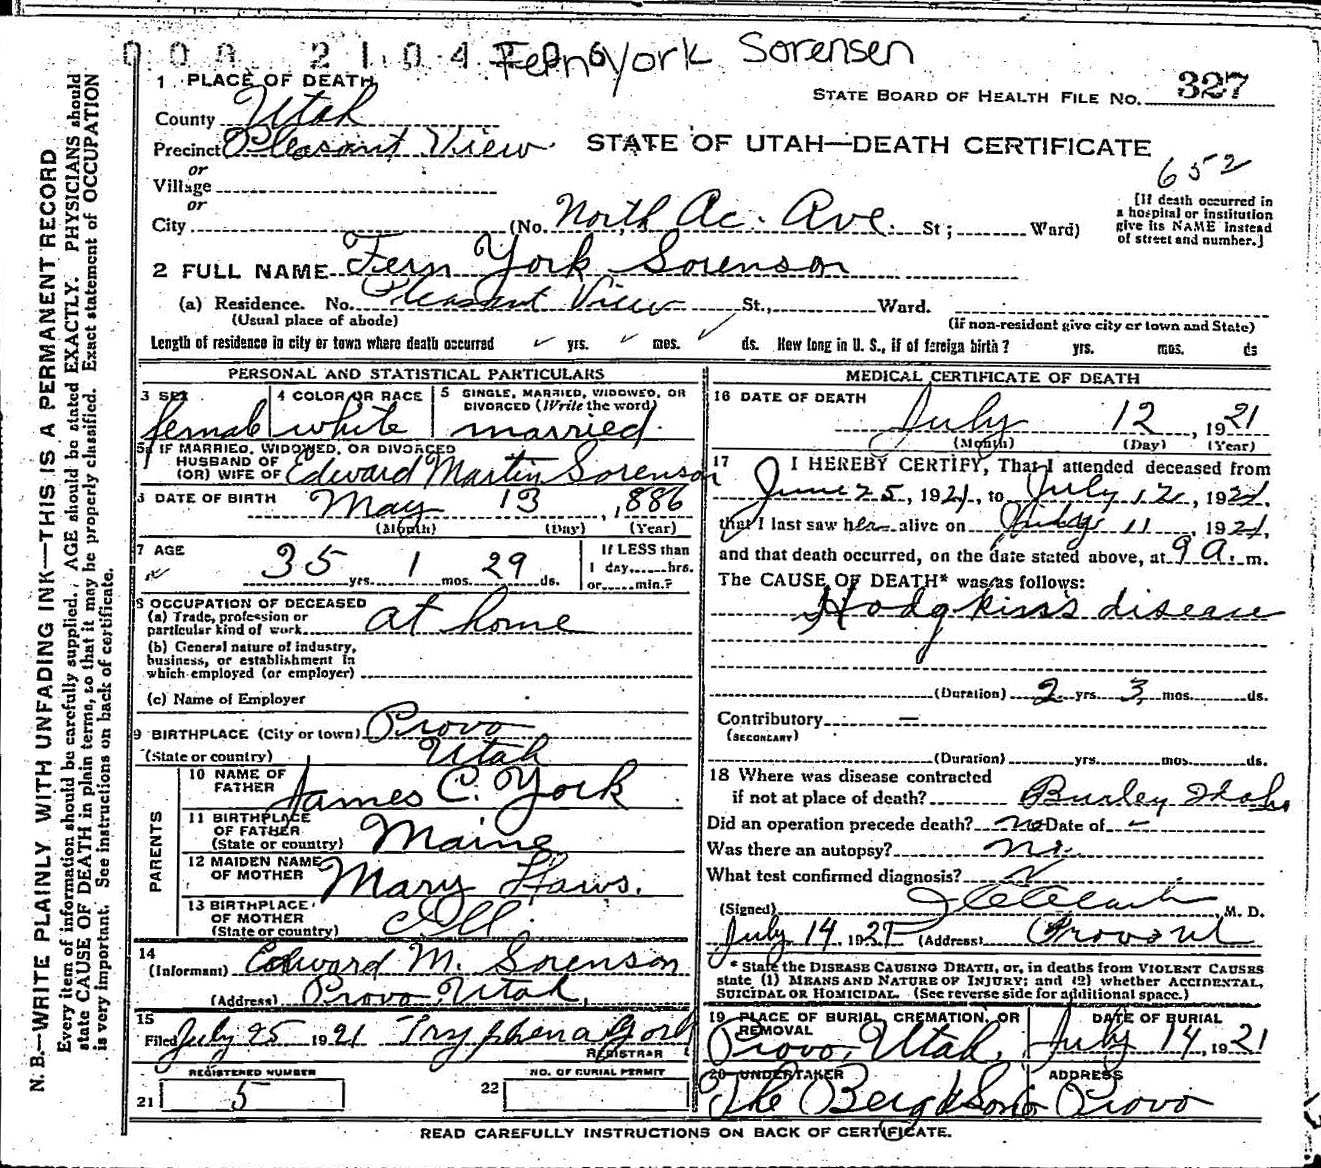 Fern York Sorensen
1 PLACE OF DEATH
STATE BOARD OF HEALTH FILE No. 327
County Utah
Precinct Pleasant View.
STATE OF UTAH—DEATH CERTIFICATE
652
or
Village
or
City (No. North Ac. Ave. St; Ward)
[If death occurred in
a hospital or institution
give its NAME instead
of street and number.]
2 FULL NAME Fern York Sorenson
(a) Residence. No. Pleasant View St., Ward.
(Usual place of abode)
(If non-resident give city or town and State)
Length of residence in city or town where death occurred yrs. mos. ds. How long in U. S., if of foreign birth? yrs. mos. ds
PERSONAL AND STATISTICAL PARTICULARS
3 SEX
female
4 COLOR OR RACE
white
5 SINGLE, MARRIED, WIDOWED, OR
DIVORCED (Write the word)
married.
5a IF MARRIED, WIDOWED, OR DIVORCED
HUSBAND OF
(OR) WIFE OF Edward Martin Sorenson
6 DATE OF BIRTH May 13, 1886
(Month) (Day) (Year)
7 AGE
35 yrs. 1 mos. 29 ds.
If LESS than
1 day, hrs.
or min.?
8 OCCUPATION OF DECEASED
(a) Trade, profession or
particular kind of work at home
(b) General nature of industry,
business, or establishment in
which employed (or employer)
(c) Name of Employer
9 BIRTHPLACE (City or town) Provo
(State or country) Utah
PARENTS
10 NAME OF
FATHER James C. York
11 BIRTHPLACE
OF FATHER
(State or country) Maine
12 MAIDEN NAME
OF MOTHER Mary Haws.
13 BIRTHPLACE
OF MOTHER
(State or country) Ill.
14
(Informant) Edward M. Sorenson
(Address) Provo, Utah,
15
Filed July 25 1921 Tryphena York
REGISTRAR
REGISTERED NUMBER
21 5
NO. OF BURIAL PERMIT
22
MEDICAL CERTIFICATE OF DEATH
16 DATE OF DEATH
July 12, 1921
(Month) (Day) (Year)
17 I HEREBY CERTIFY, That I attended deceased from
June 25, 1921, to July 12, 1921,
that I last saw her alive on July 11, 1921,
and that death occurred, on the date stated above, at 9 a. m.
The CAUSE OF DEATH* was as follows:
Hodgkins's disease
(Duration) 2 yrs 3 mos. ds.
Contributory —
(SECONDARY)
(Duration) yrs. mos. ds.
18 Where was disease contracted
if not at place of death? Burley Idaho
Did an operation precede death? no Date of –
Was there an autopsy? no
What test confirmed diagnosis?
(Signed) M. D.
July 14 1921 (Address) Provo Ut
* State the DISEASE CAUSING DEATH, or, in deaths from VIOLENT CAUSES
state (1) MEANS AND NATURE OF INJURY; and (2) whether ACCIDENTAL,
SUICIDAL OR HOMICIDAL. (See reverse side for additional space.)
19 PLACE OF BURIAL, CREMATION, OR
REMOVAL
Provo, Utah,
DATE OF BURIAL
July 14, 1921
20 UNDERTAKER
The Berg & Sons
ADDRESS
Provo
READ CAREFULLY INSTRUCTIONS ON BACK OF CERTIFICATE.
N. B.—WRITE PLAINLY WITH UNFADING INK—THIS IS A PERMANENT RECORD
Every item of information should be carefully supplied. AGE should be stated EXACTLY. PHYSICIANS should
state CAUSE OF DEATH in plain terms, so that it may be properly classified. Exact statement of OCCUPATION
is very important. See instructions on back of certificate.